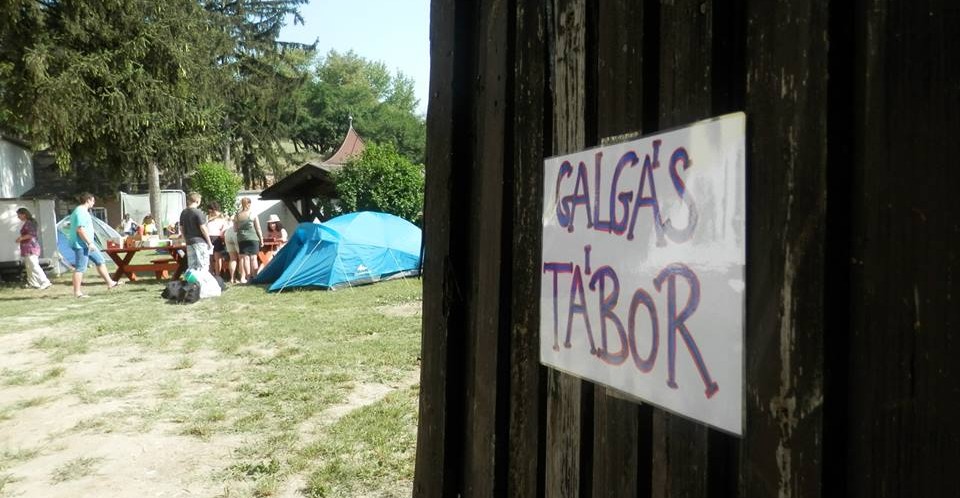 GALGÁS
TÁBOR